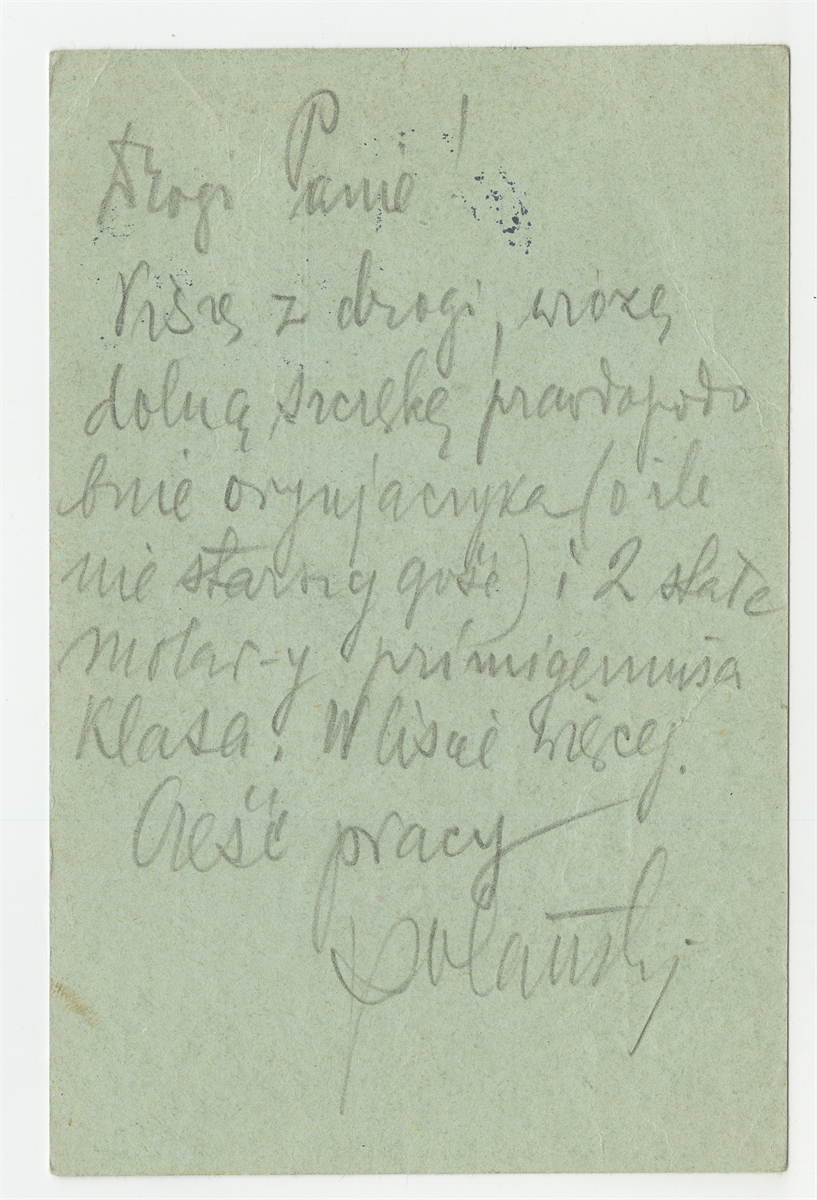 Drogi Panie!
Piszę z drogi, wiozę
dolną szczękę prawdopodo
bnie orynjaczyka (o ile
nie starszy gość) i 2 stałe
molar-y primigeniusa
Klasa. W liście więcej.
Cześć pracy
Polański